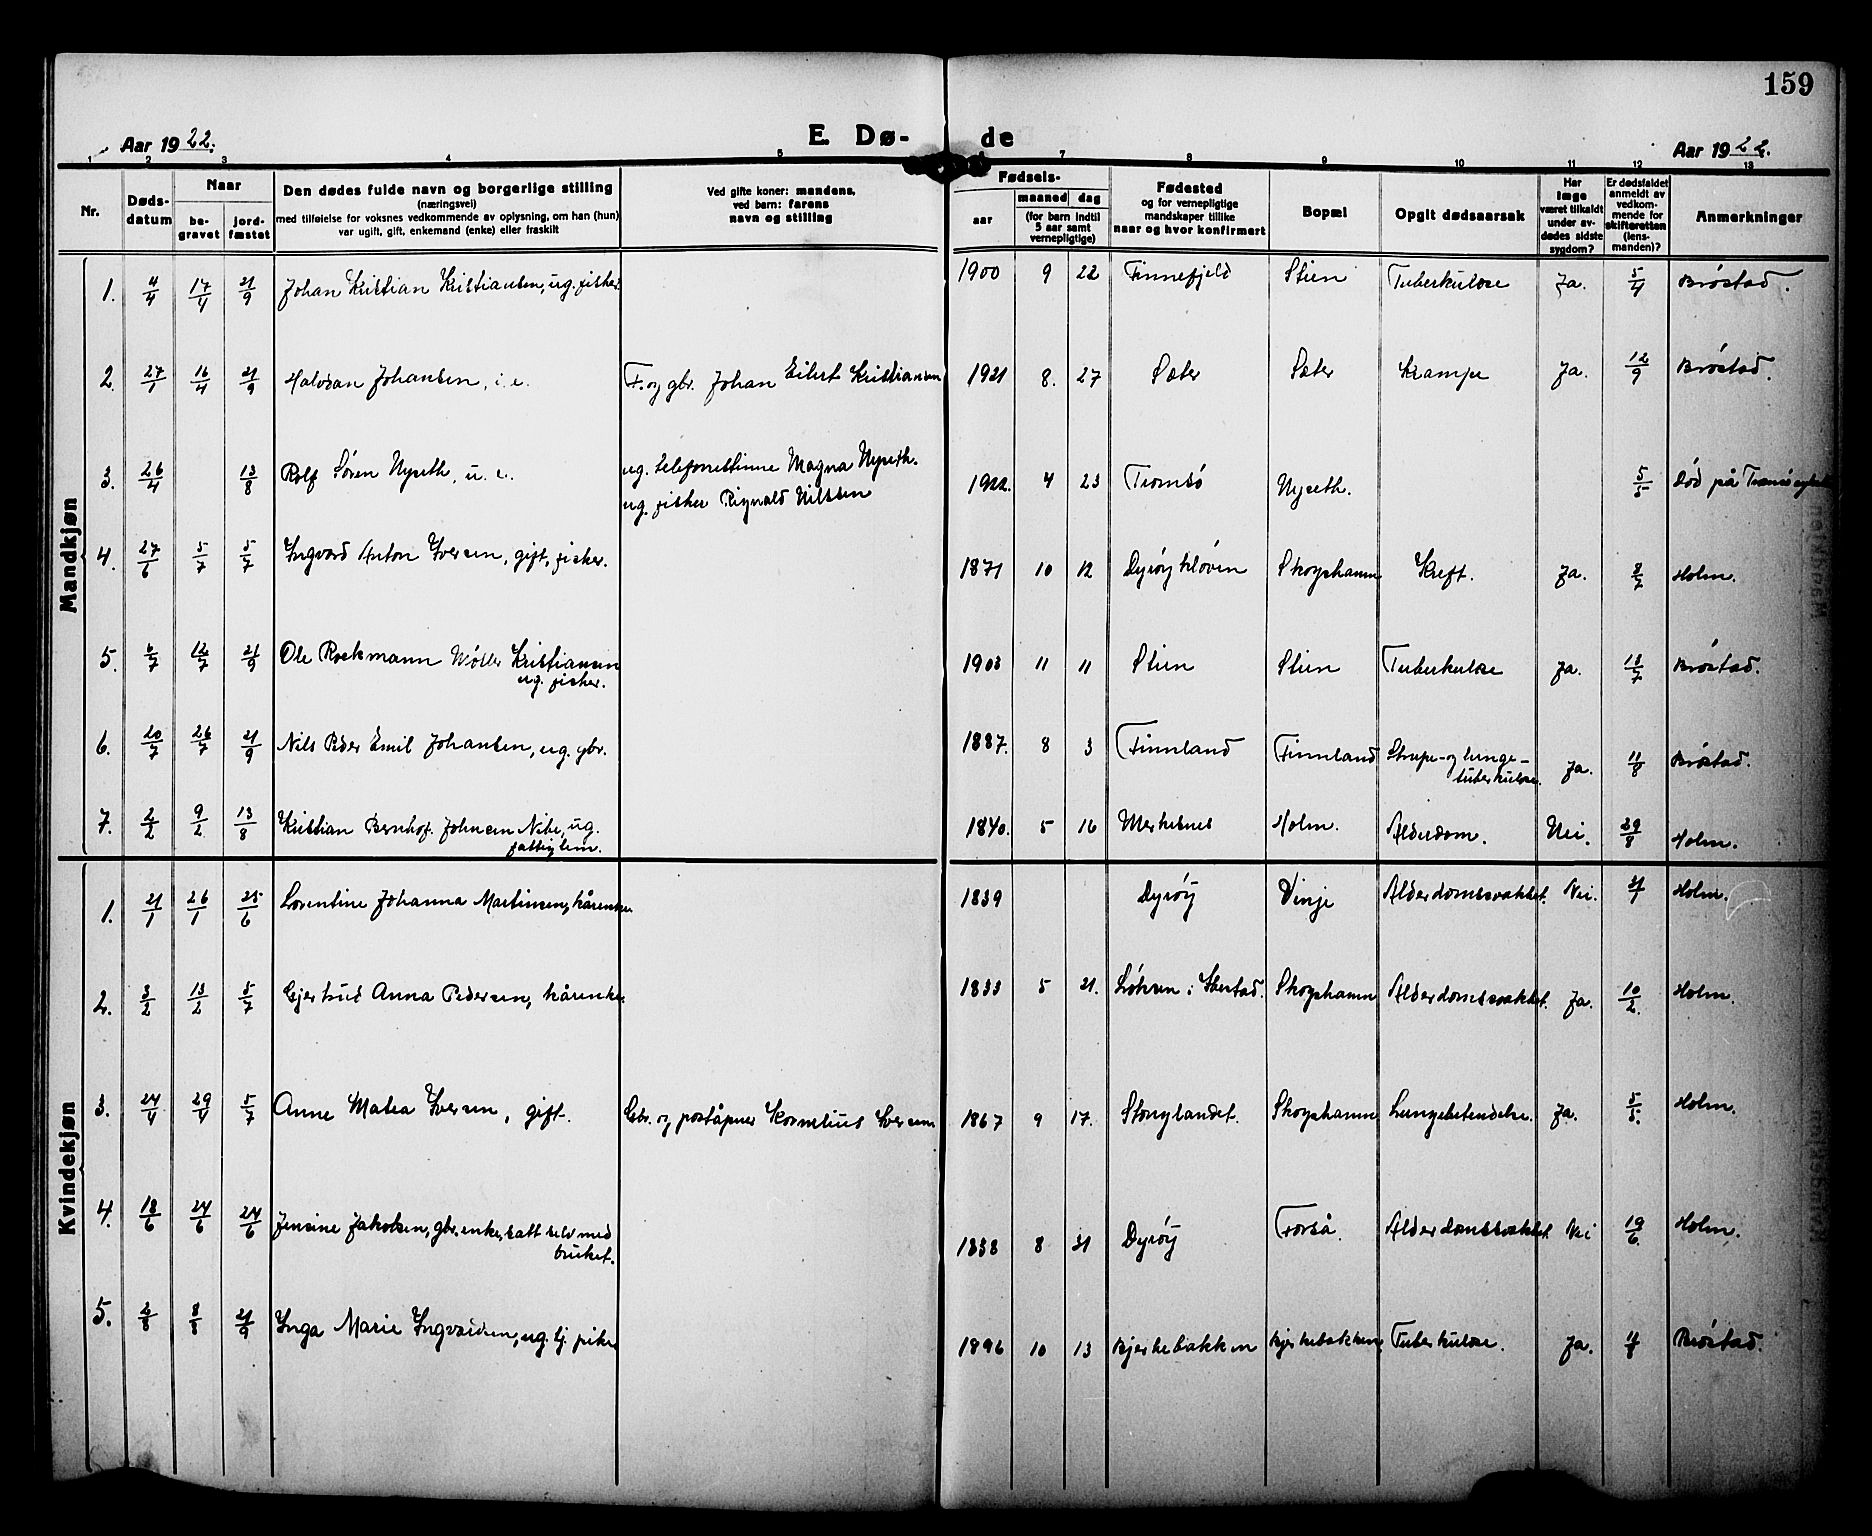 159
Aar 1922.
E. Dø- de
Aar 1922.
1 2 3 4 5 6 7 8 9 10 11 12 13
Nr. Døds-datum Naar be-gravet jord-fæstet Den dødes fulde navn og borgerlige stilling (næringsvei) med tilføielse for voksnes vedkommende av oplysning, om han (hun) var ugift, gift, enkemand (enke) eller fraskilt Ved gifte koner: mandens, ved barn: farens navn og stilling Fødsels- aar maaned dag (for barn indtil 5 aar samt vernepligtige) Fødested og for vernepligtige mandskaper tillike naar og hvor konfirmert Bopæl Opgit dødsaarsak Har læge været tilkaldt under av-dødes sidste sygdom? Er dødsfaldet anmeldt av vedkom-mende for skifteretten (lens-manden)? Anmerkninger
Mandkjøn
1. 4/4 17/4 21/9 Johan Kristian Kristiansen, ug. fisker 1900 9 22 Finnefjeld Stien Tuberkulose Ja. 5/4 Brøstad.
2. 27/1 16/4 21/9 Halvdan Johansen, i.e. F. og gbr. Johan Eilert Kristiansen 1921 8. 27 Sæter Sæter Krampe Ja. 12/9 Brøstad.
3. 26/4 13/8 Rolf Søren Nyseth, u.e. ug. telefonistinne Magna Nyseth.
ug. fisker Rignald Nilssen 1922. 4 23 Tromsø Nyseth. 5/5 Død på Tromsø
4. 27/6 5/7 5/7 Ingvard Anton Iversen, gift, fisker. 1871 10 12 Dyrøykløven Skogshamn Kreft. Ja. Holm.
5. 6/7 12/7 21/9 Ole Rockmann Møller Kristiansen
ug. fisker. 1903 11 11 Stien Stien Tuberkulose Ja. 13/7 Brøstad.
6. 20/7 26/7 21/9 Nils Peder Emil Johansen, ug. gbr. 1887. 8 3 Finnland Finnland Strupe- og lunge-
tuberkulose. Ja. 11/8 Brøstad.
7. 2/2 9/2 13/8 Kristian Bernhof. Johnsen Nibe, ug.
fattiglem. 1840. 5 16 Merkesnes Holm. Alderdom. Nei. 29/8 Holm.
Kvindekjøn
1. 21/1 26/1 25/6 Lorentine Johanna Martinsen, kårenke 1839 Dyrøy Vinje Alderdomssvakhet. Nei. Holm.
2. 3/2 13/2 5/7 Gjertrud Anna Pedersen, kårenke. 1833 5 21. Løksen i Ibestad. Skogshamn Alderdomssvakhet. Ja. 10/2. Holm.
3. 24/4 29/4 5/7 Anne Matea Iversen, gift. Gbr. og poståpner Kornelius Iversen 1867 9 17. Stonglandet. Skogshamn Lungebetendelse. Ja. 5/5. Holm.
4. 18/6 24/6 24/6 Jensine Jakobsen, gbr. enke, satt selv med
bruket. 1838 8 31 Dyrøy Torså. Alderdomssvakhet. Nei 19/6. Holm.
5. 2/8 8/8 21/9 Inga Marie Ingvardsen, ug. tj. pike 1896 10 13 Bjerkebakken Bjerkebakken. Tuberkulose. Ja. Brøstad.